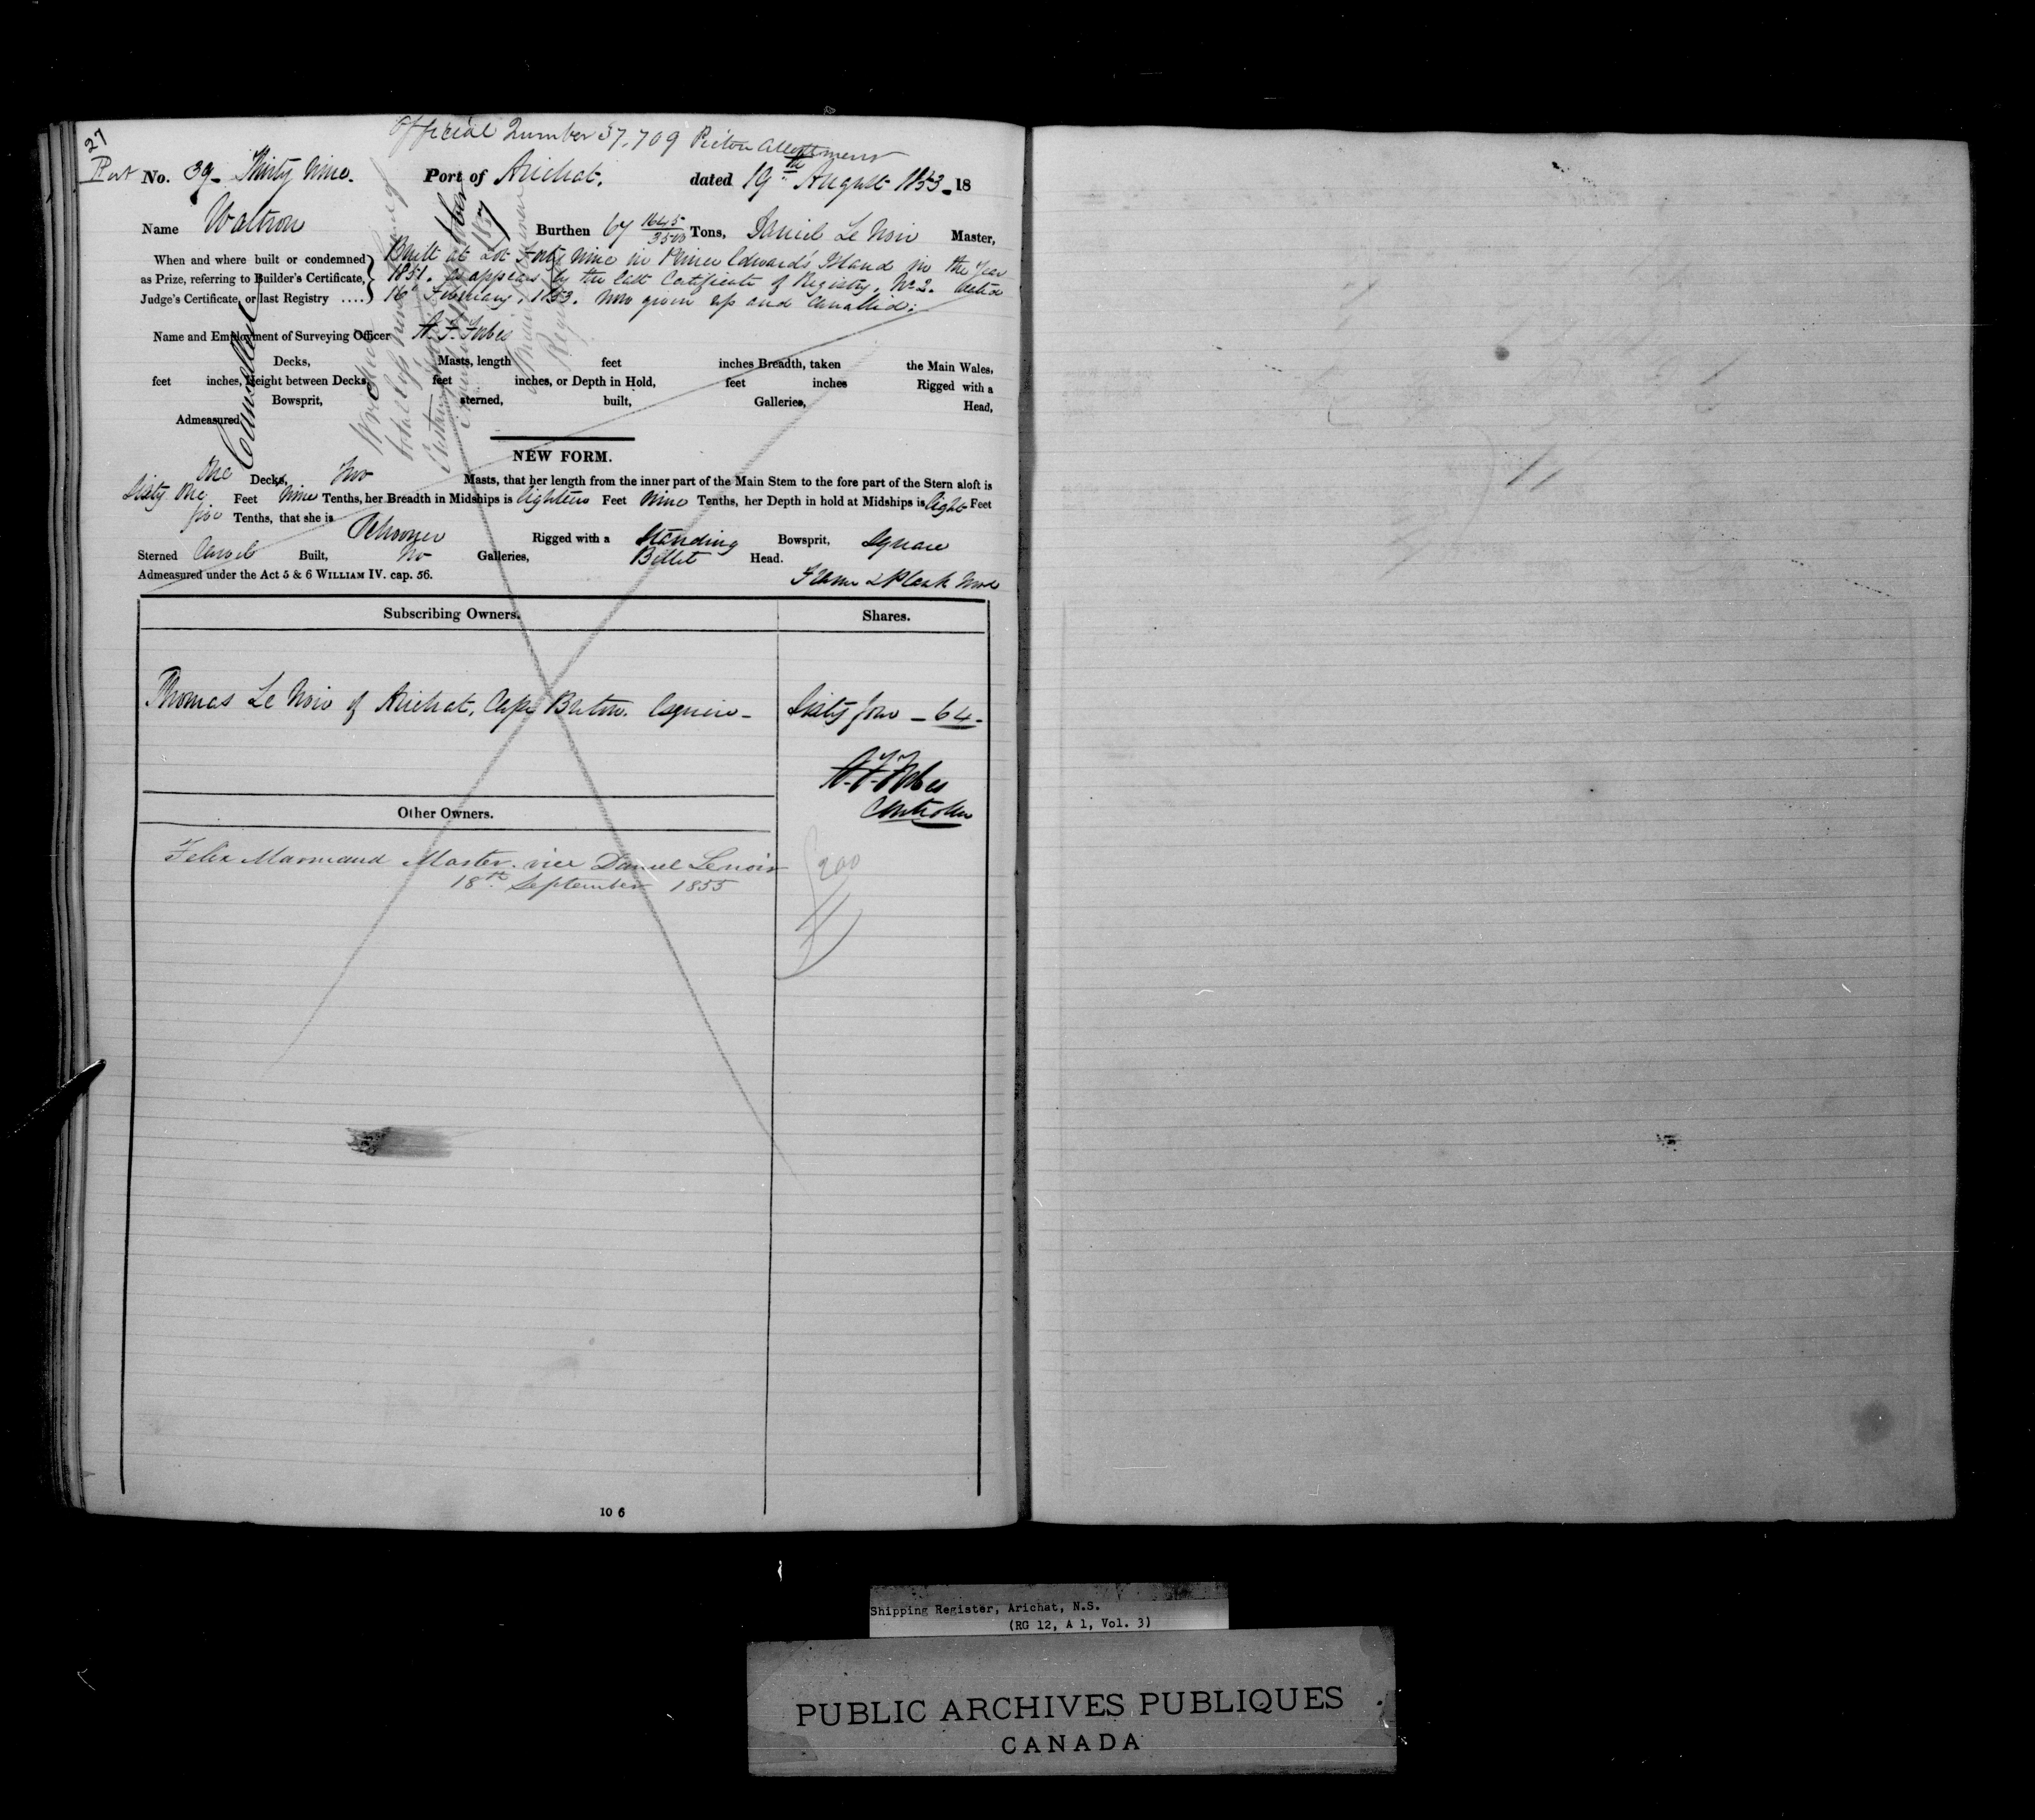 27
Official Number 37,709 Pictou Allotment
Port No. 39 - Thirty Nine. Port of Arichat. dated 19th August 1853 - 18
Name Waltron Burthen 67 1645/3500 Tons, Daniel Le Noir Master,
When and where built or condemned as Prize, referring to Builder's Certificate, Judge's Certificate, or last Registry ....
Built at Lot Forty Nine in Prince Edward's Island in the Year
1851. as appears by the last Certificate of Registry, No. 2. dated
16th February, 1853. now given up and cancelled.
Name and Employment of Surveying Officer A. F. Forbes
Decks, Masts, length feet inches Breadth, taken the Main Wales,
feet inches, Height between Decks, feet inches, or Depth in Hold, feet inches Rigged with a
Bowsprit, sterned, built, Galleries, Head,
Admeasured
Cancelled
NEW FORM.
One Decks, Two Masts, that her length from the inner part of the Main Stem to the fore part of the Stern aloft is
Sixty One Feet nine Tenths, her Breadth in Midships is Eighteen Feet Nine Tenths, her Depth in hold at Midships is Eight Feet
five Tenths, that she is Schooner Rigged with a Standing Bowsprit, Square
Sterned Carvel Built, No Galleries, Billet Head.
Admeasured under the Act 5 & 6 WILLIAM IV. cap. 56. Frame & Plank Wood
Subscribing Owners. Shares.
Thomas Le Noir of Arichat, Cape Breton. Esquire - Sixty four - 64 -
A. F. Forbes
Controller
Other Owners.
Felix Marmaud Master. vice Daniel Lenoir
18th September 1855
200
10 6
Shipping Register, Arichat, N.S.
(RG 12, A 1, Vol. 3)
PUBLIC ARCHIVES PUBLIQUES
CANADA